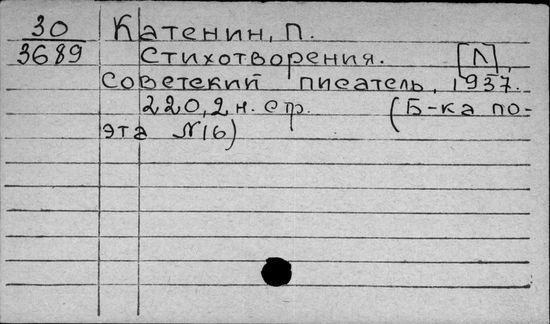 30 Катенин, П.
3689 Стихотворения. [Л],
советский писатель, 1937.
220, 2 н. стр. (Б-ка по-
эта №16)